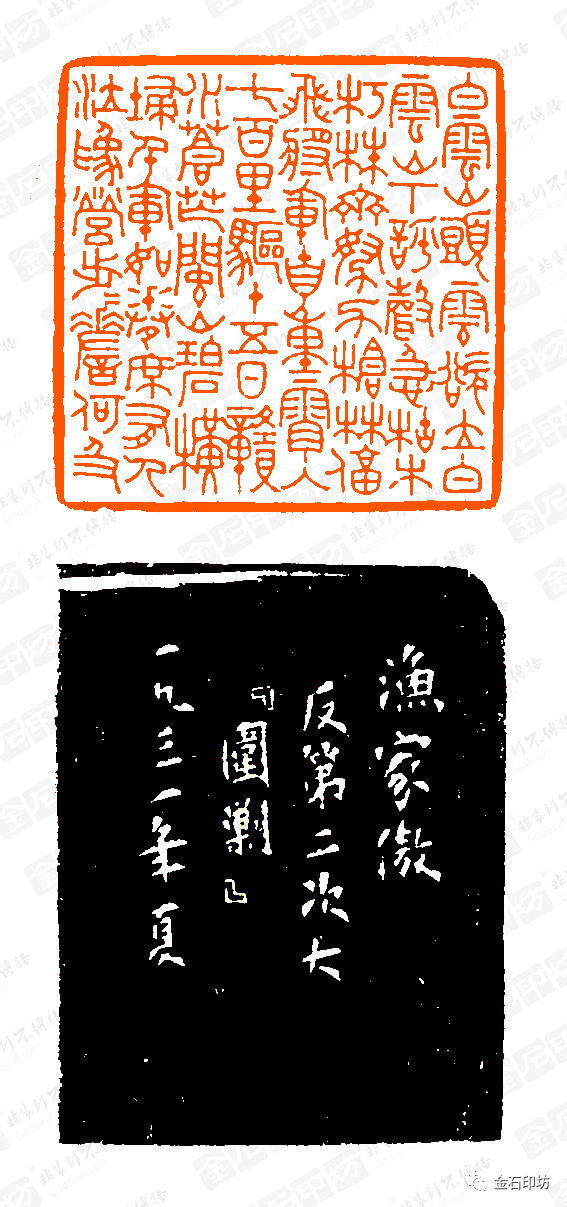 白雲山頭雲欲立白
雲山下呼聲急枯木
朽株齊努力槍林偪
飛將軍自重霄入
七百里驅十五日贛
水蒼茫閩山碧橫
掃千軍如卷席有人
泣為營步步嗟何及
漁家傲
反第二次大
『圍剿』
一九三一年夏
金石印坊